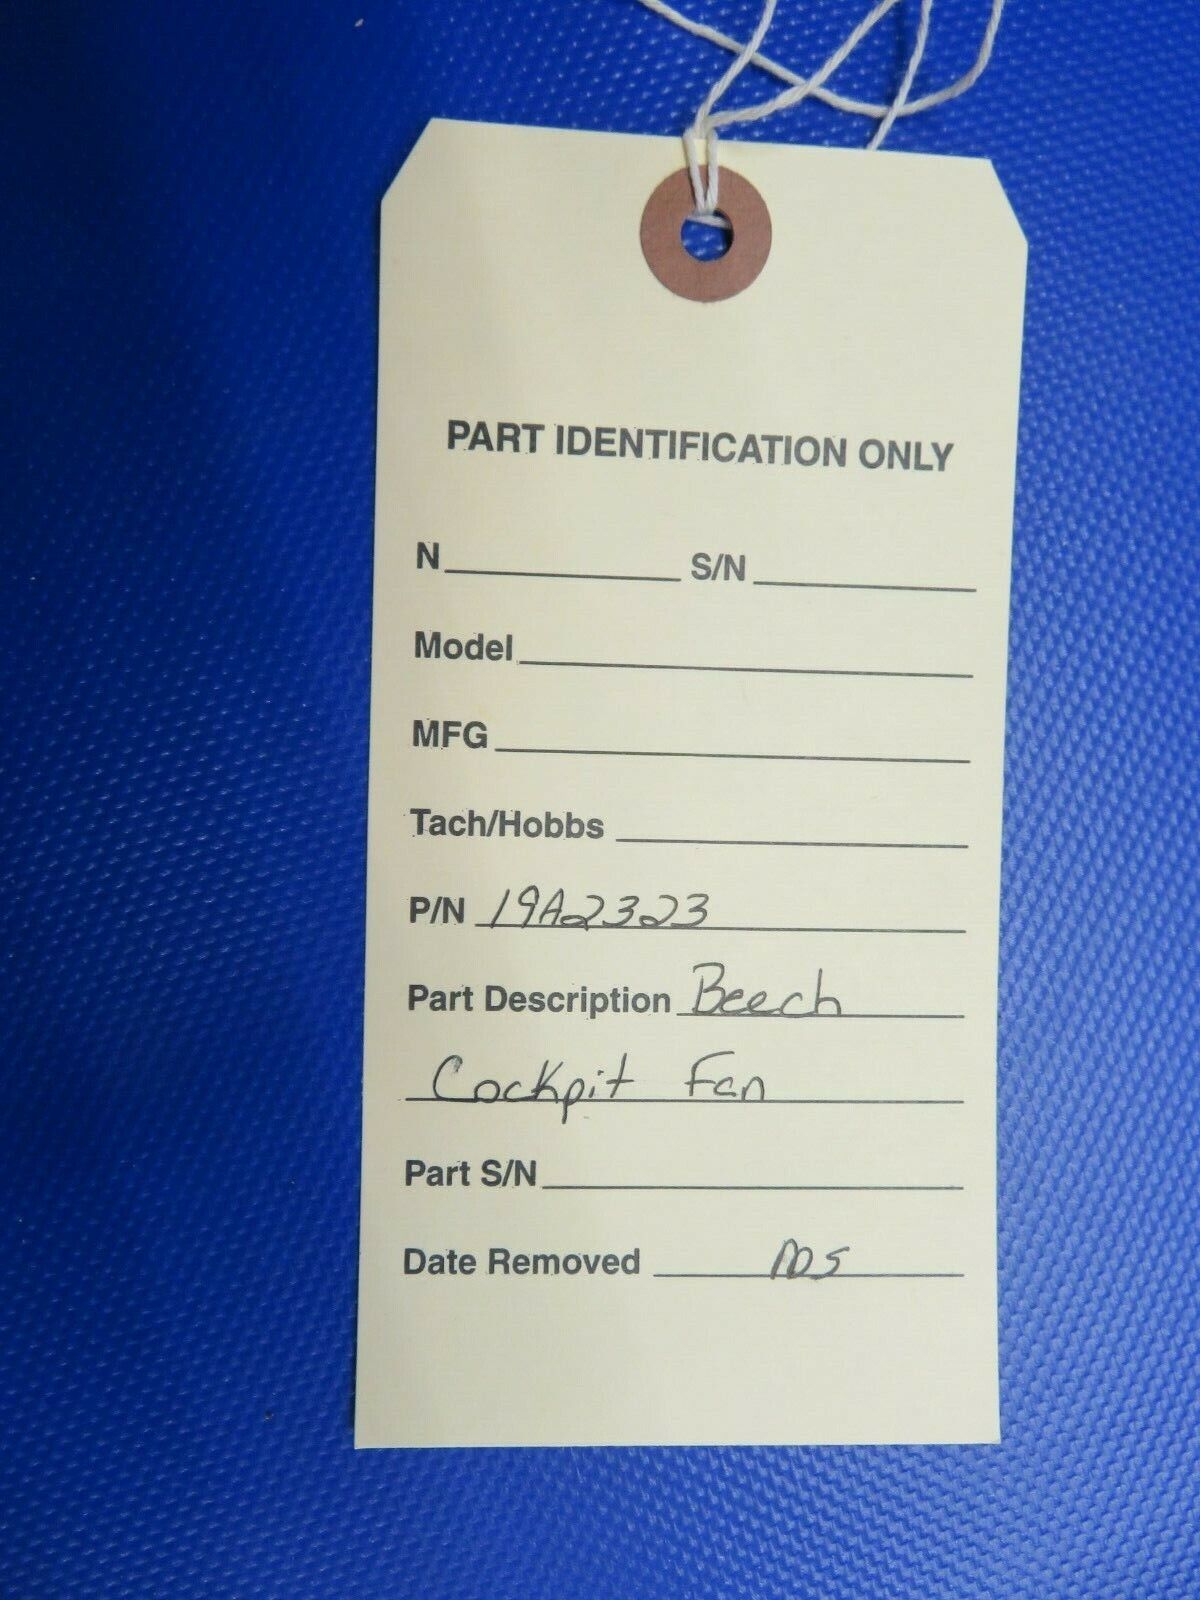 PART IDENTIFICATION ONLY
N S/N
Model
MFG
Tach/Hobbs
P/N 19A2323
Part Description Beech
Cockpit Fan
Part S/N
Date Removed